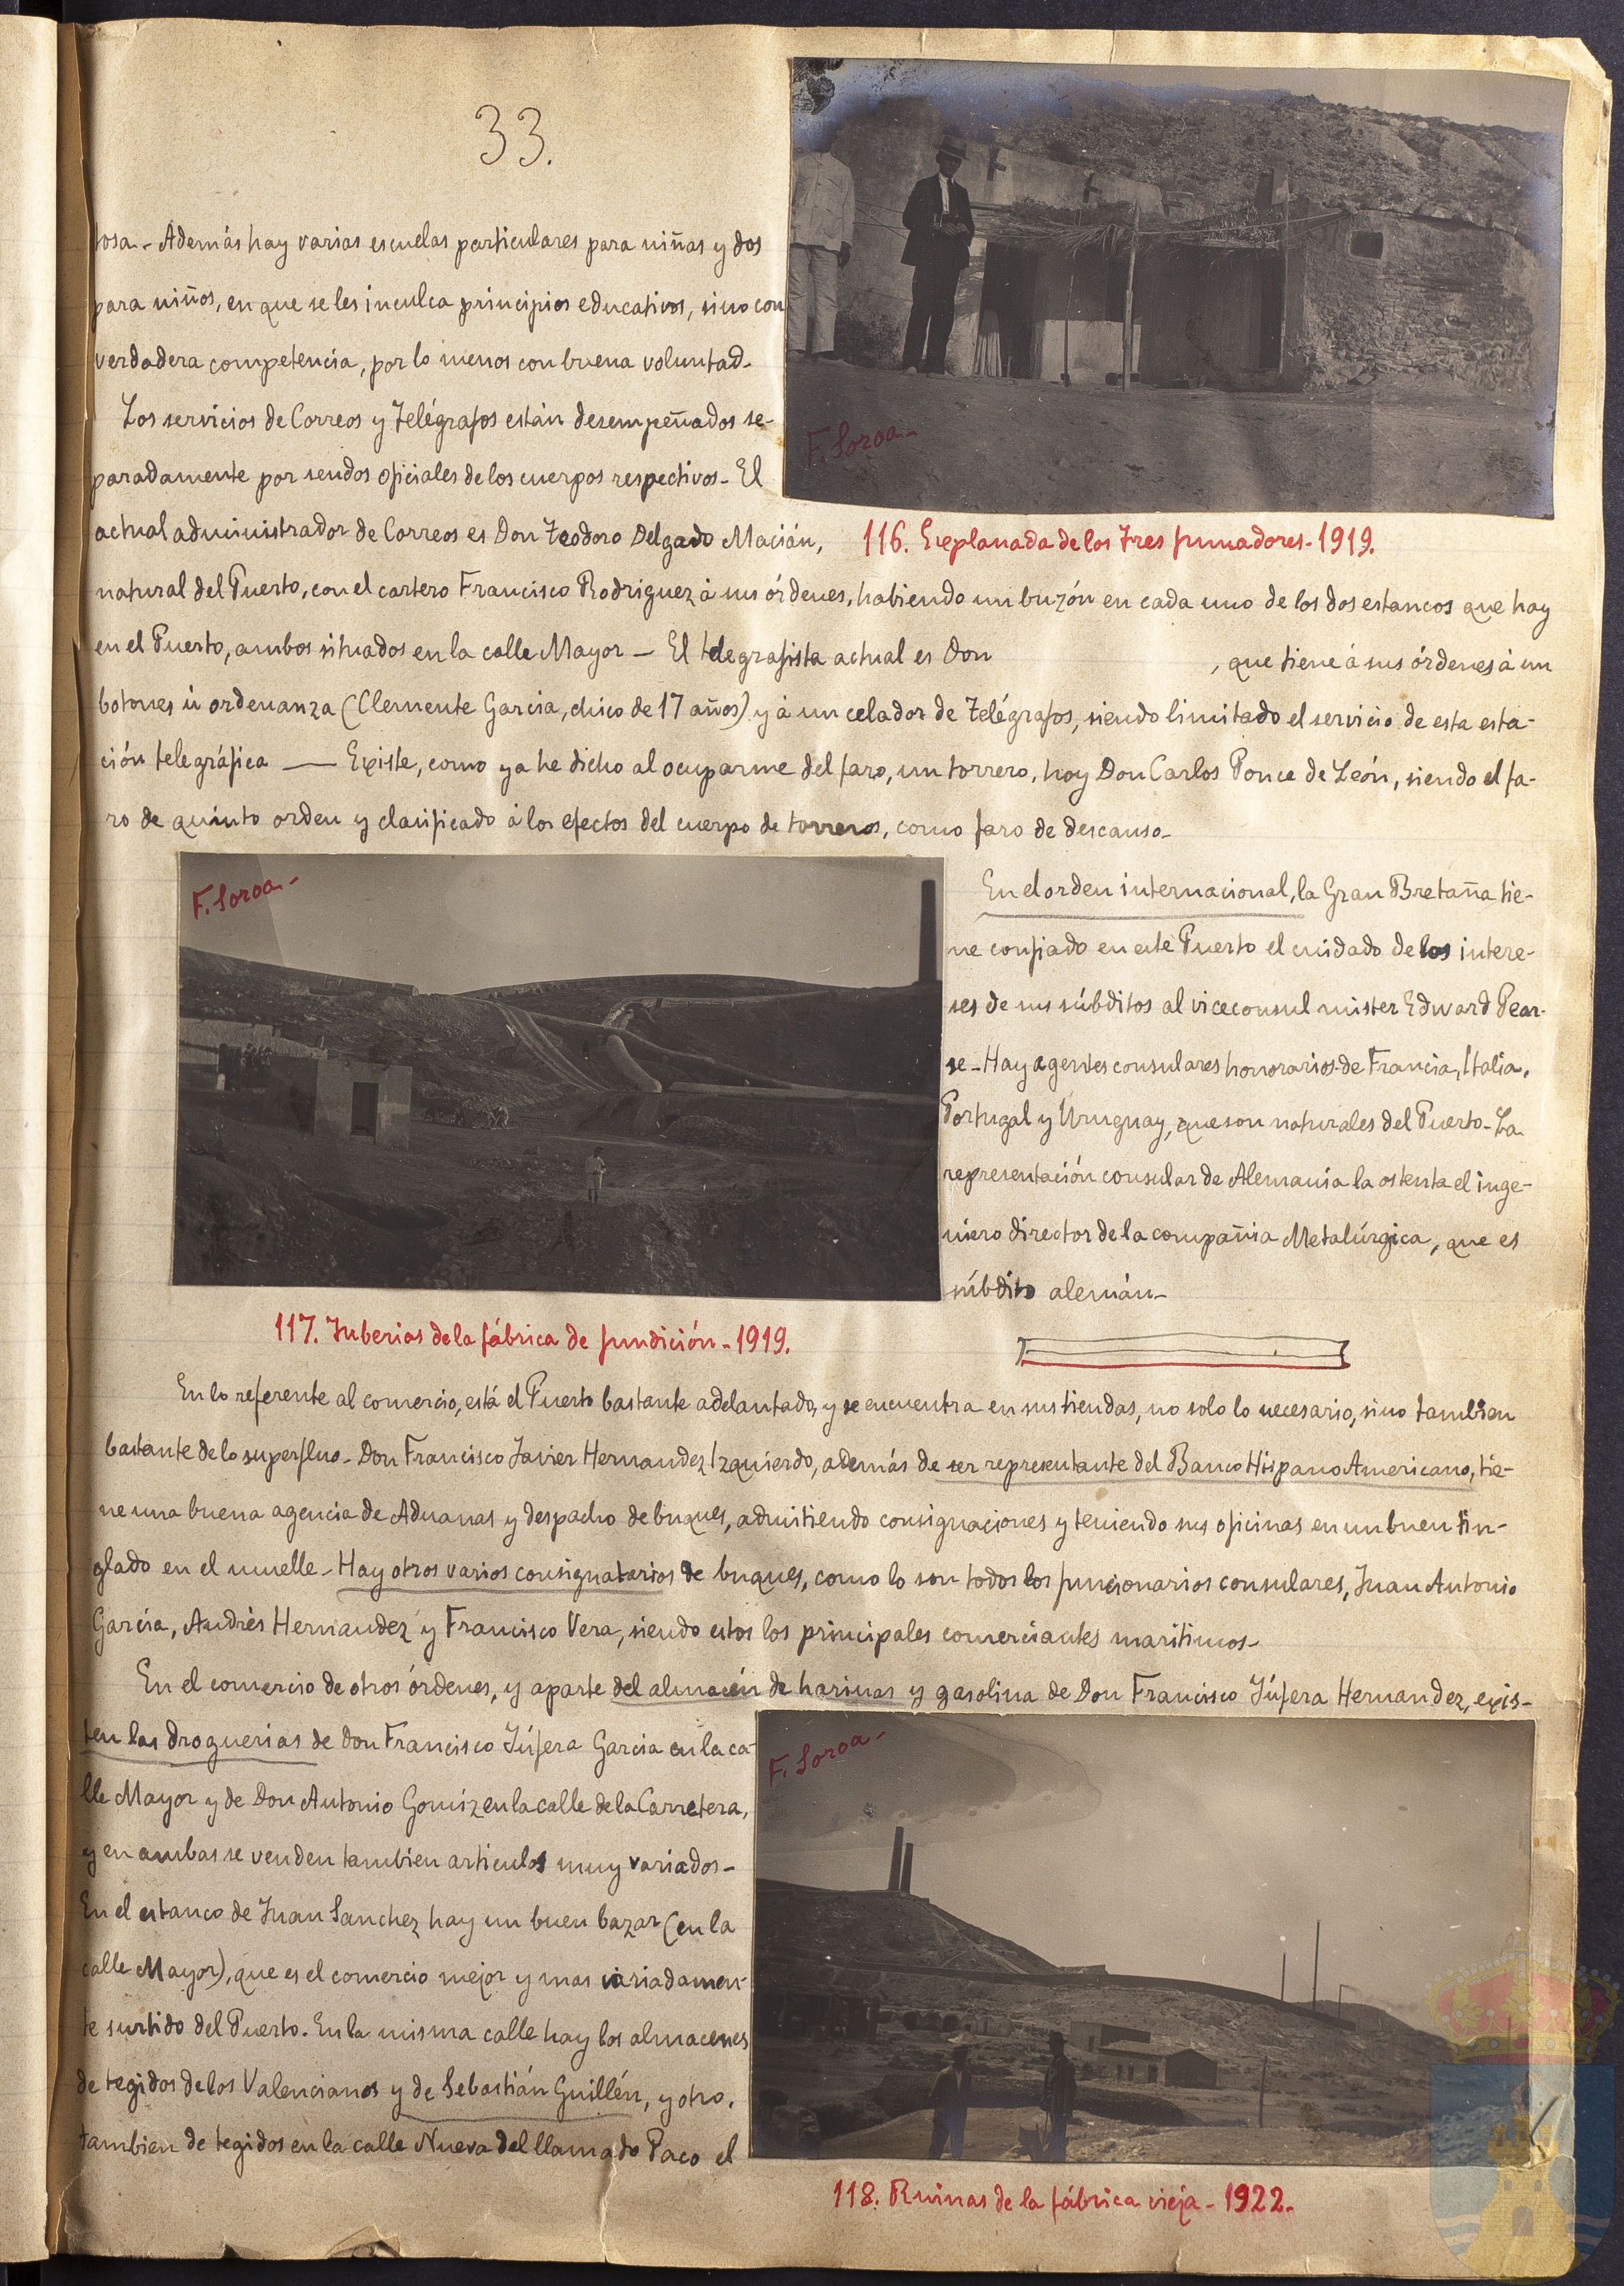 33.
tosa.- Además hay varias escuelas particulares para niñas y dos
para niños, en que se les inculca principios educativos, sino con
verdadera competencia, por lo menos con buena voluntad-
Los servicios de Correos y Telégrafos están desempeñados se-
paradamente por sendos oficiales de los cuerpos respectivos- El
actual administrador de Correos es Don Teodoro Delgado Macián,
natural del Puerto, con el cartero Francisco Rodriguez á sus órdenes, habiendo un buzón en cada uno de los dos estancos que hay
en el Puerto, ambos situados en la calle Mayor — El telegrafista actual es Don , que tiene á sus órdenes á un
botones ú ordenanza (Clemente Garcia, chico de 17 años) y á un celador de Telégrafos, siendo limitado el servicio de esta esta-
ción telegráfica — Existe, como ya he dicho al ocuparme del faro, un torrero, hoy Don Carlos Ponce de León, siendo el fa-
ro de quinto orden y clasificado á los efectos del cuerpo de torreros, como faro de descanso-
F. Soroa-
116. Explanada de los Tres fumadores-1919.
F. Soroa-
117. Tuberias de la fábrica de fundición-1919.
En el orden internacional, la Gran Bretaña tie-
ne confiado en este Puerto el cuidado de los intere-
ses de sus súbditos al viceconsul mister Edward Pear-
se- Hay agentes consulares honorarios de Francia, Italia,
Portugal y Uruguay, que son naturales del Puerto- La
representación consular de Alemania la ostenta el inge-
niero director de la compañia Metalúrgica, que es
súbdito alemán-
En lo referente al comercio, está el Puerto bastante adelantado, y se encuentra en sus tiendas, no solo lo necesario, sino tambien
bastante de lo superfluo- Don Francisco Javier Hernandez Izquierdo, además de ser representante del Banco Hispano Americano, tie-
ne una buena agencia de Aduanas y despacho de buques, admitiendo consignaciones y teniendo sus oficinas en un buen tin-
glado en el muelle- Hay otros varios consignatarios de buques, como lo son todos los funcionarios consulares, Juan Antonio
García, Andrés Hernandez y Francisco Vera, siendo estos los principales comerciantes marítimos-
En el comercio de otros órdenes, y aparte del almacén de harinas y gasolina de Don Francisco Júfera Hernandez, exis-
ten las droguerias de Don Francisco Júfera Garcia en la ca-
lle Mayor y de Don Antonio Gomiz en la calle de la Carretera,
y en ambas se venden tambien articulos muy variados-
En el estanco de Juan Sanchez hay un buen bazar (en la
calle Mayor), que es el comercio mejor y mas variadamen-
te surtido del Puerto. En la misma calle hay los almacenes
de tegidos de los Valencianos y de Sebastián Guillén, y otro,
tambien de tegidos en la calle Nueva del llamado Paco el
F. Soroa-
118. Ruinas de la fábrica vieja-1922-